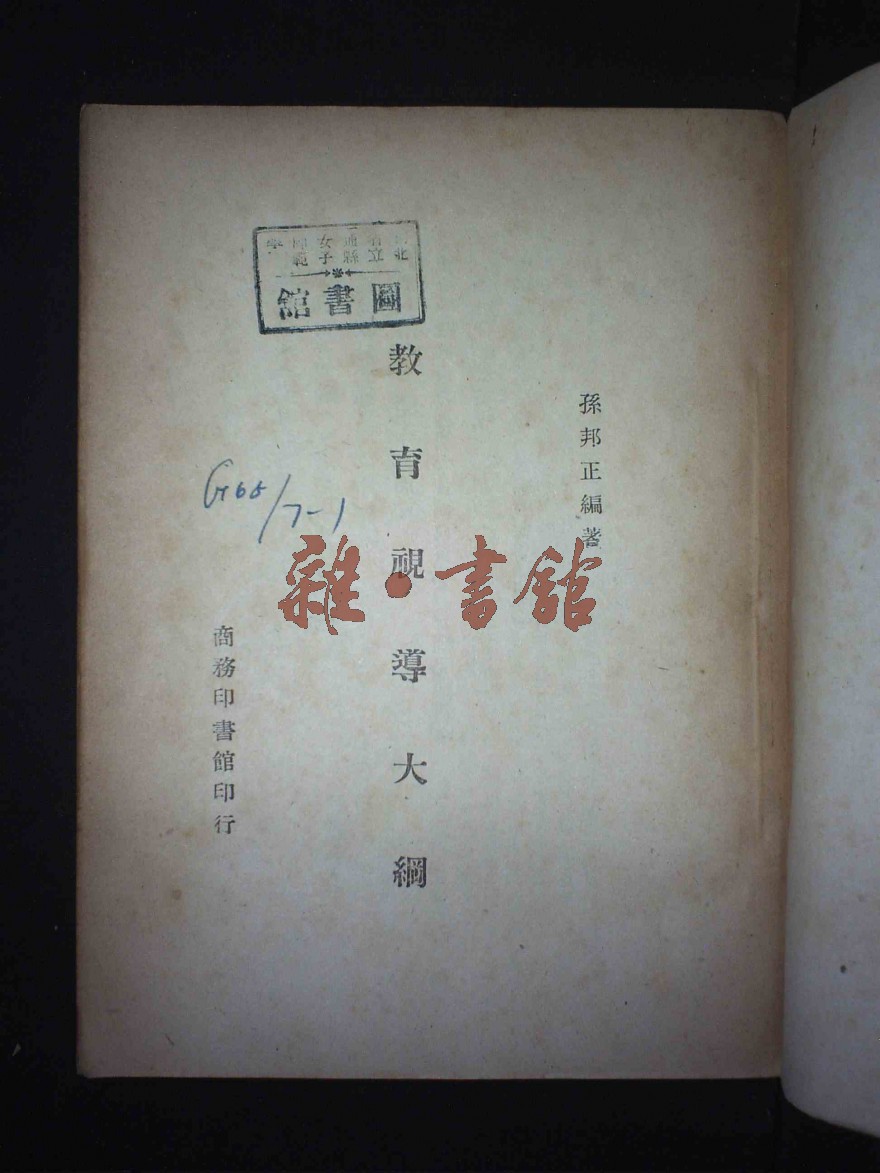 孫邦正編著
教育視導大綱
商務印書館印行
北省立通縣女子師範學
圖書館
G65/7-1
雜·書館